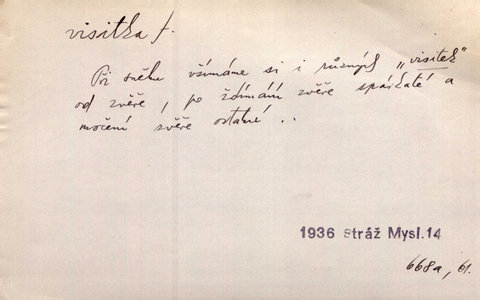 visitka f.
Při sněhu všímáme si i různých „visitek"
od zvěře, po ždímání zvěře spárkaté a
močení zvěře ostatné ..
1936 Stráž Mysl.14
668a, 61.